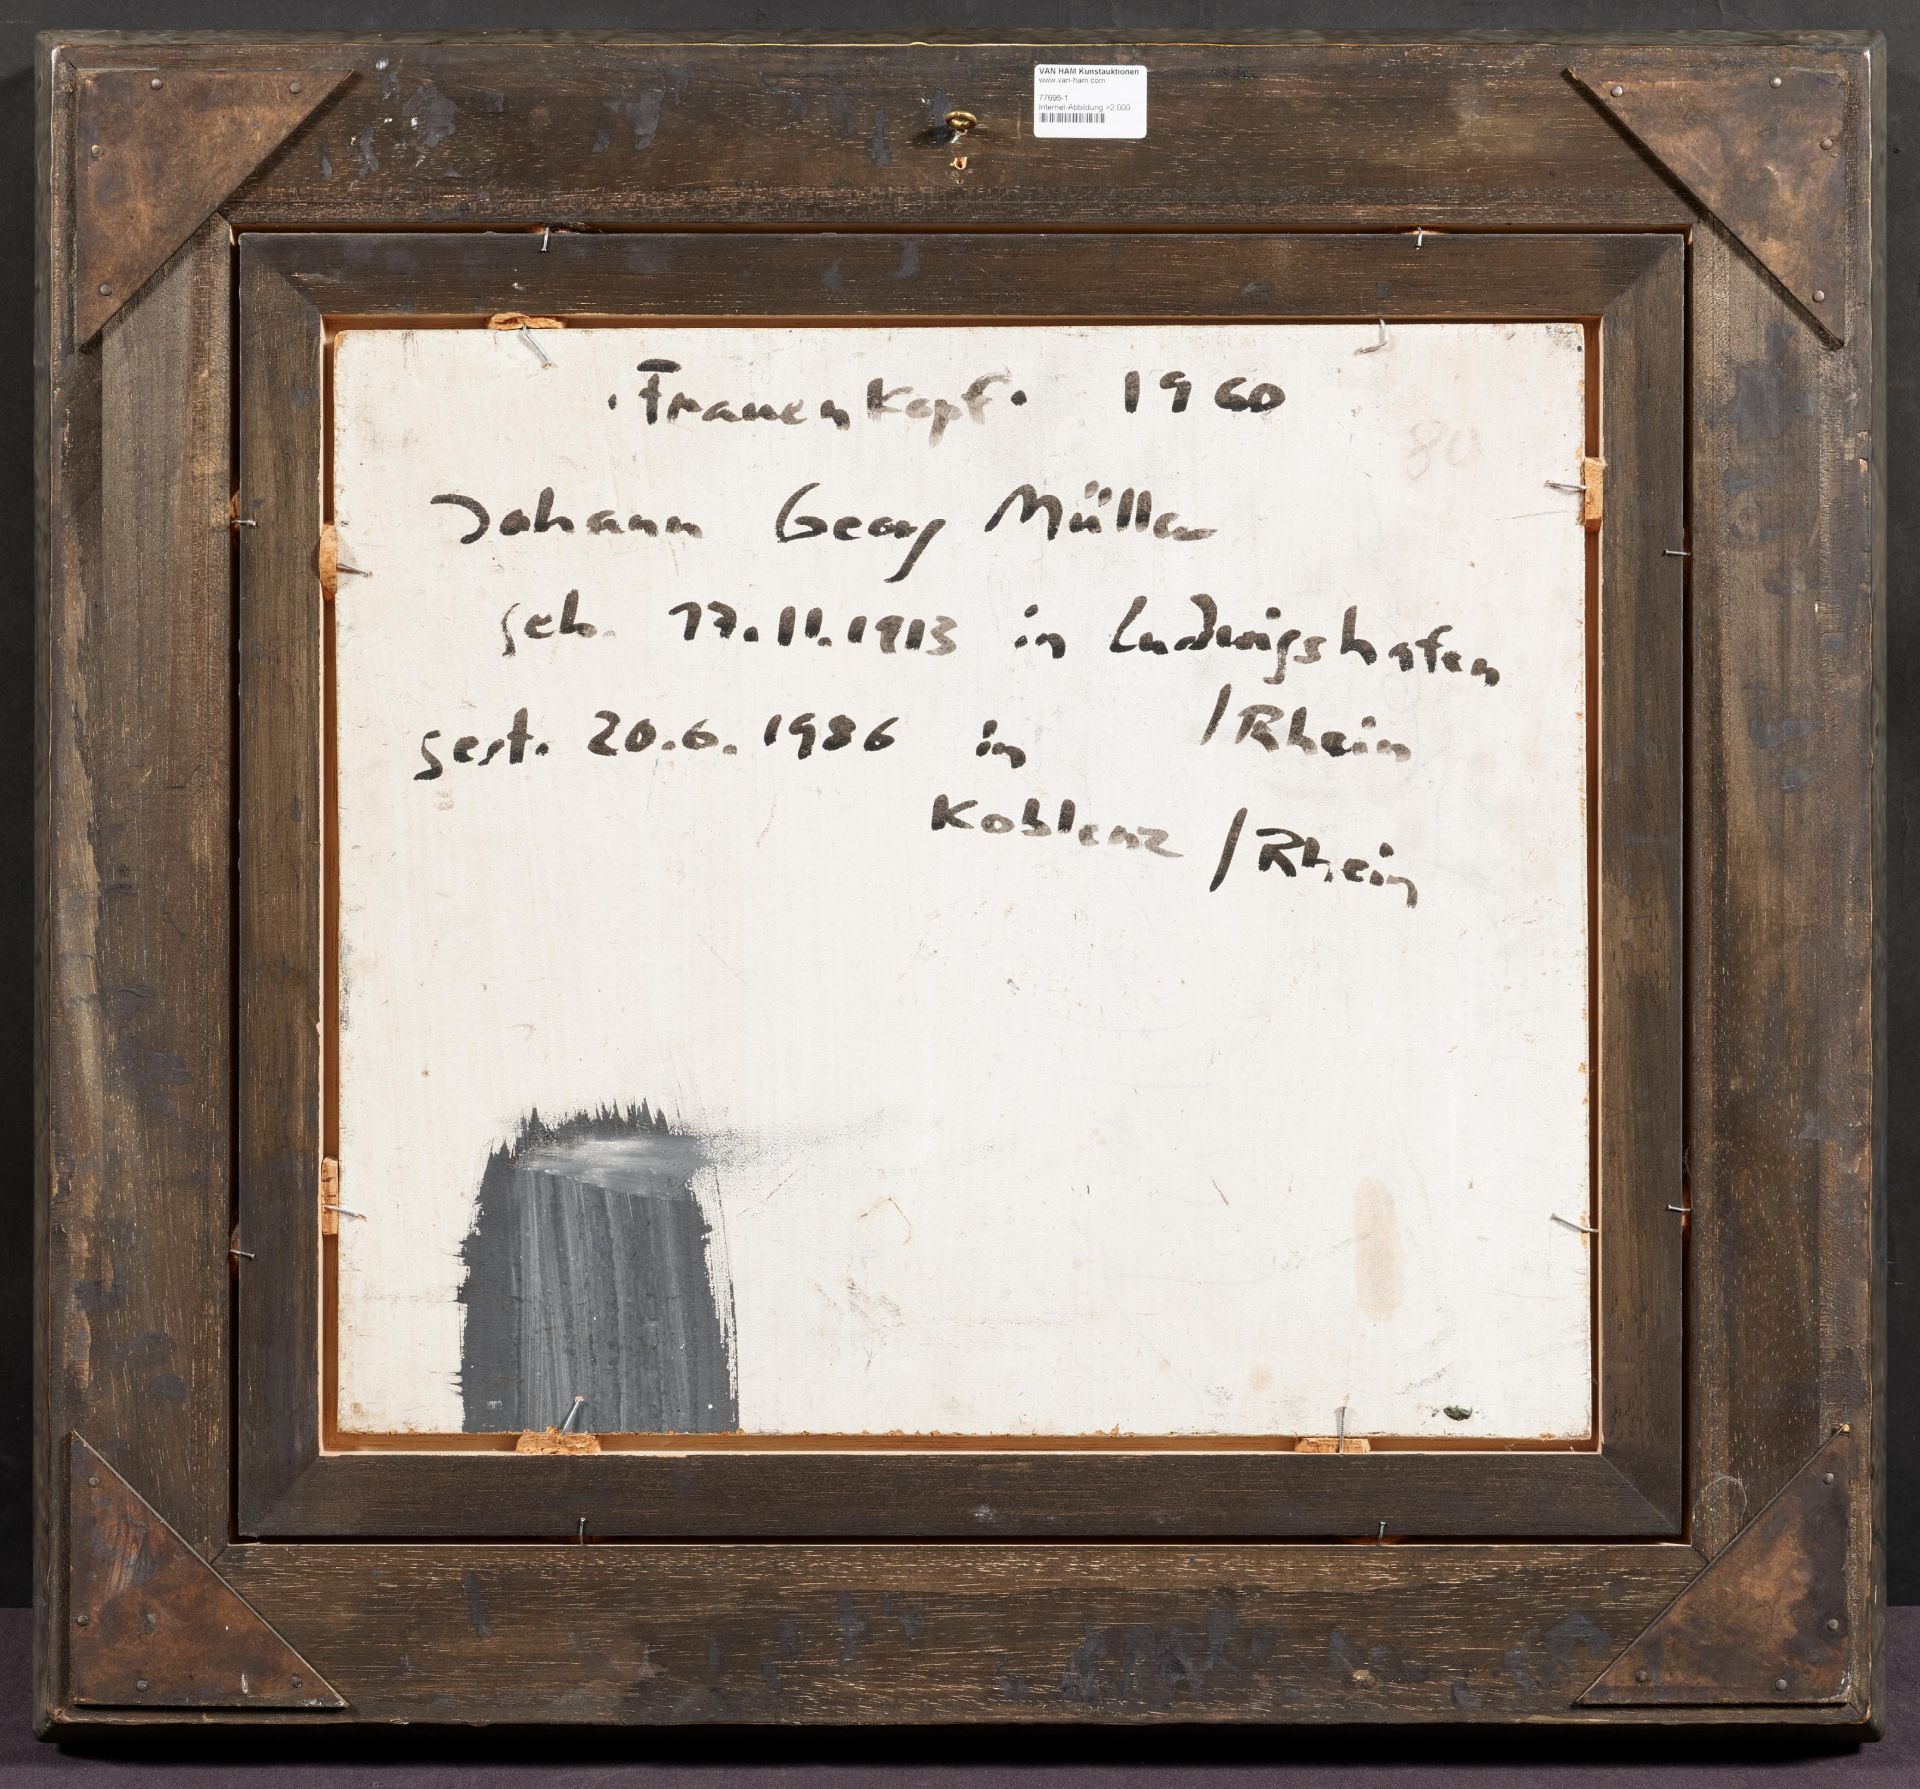 VAN HAM Kunstauktionen
www.van-ham.com
77695-1
Internet-Abbildung >2.000
"Frauenkopf" 1960
80
Johann Georg Müller
geb. 17.11.1913 in Ludwigshafen
/Rhein
gest. 20.6.1986 in
Koblenz /Rhein